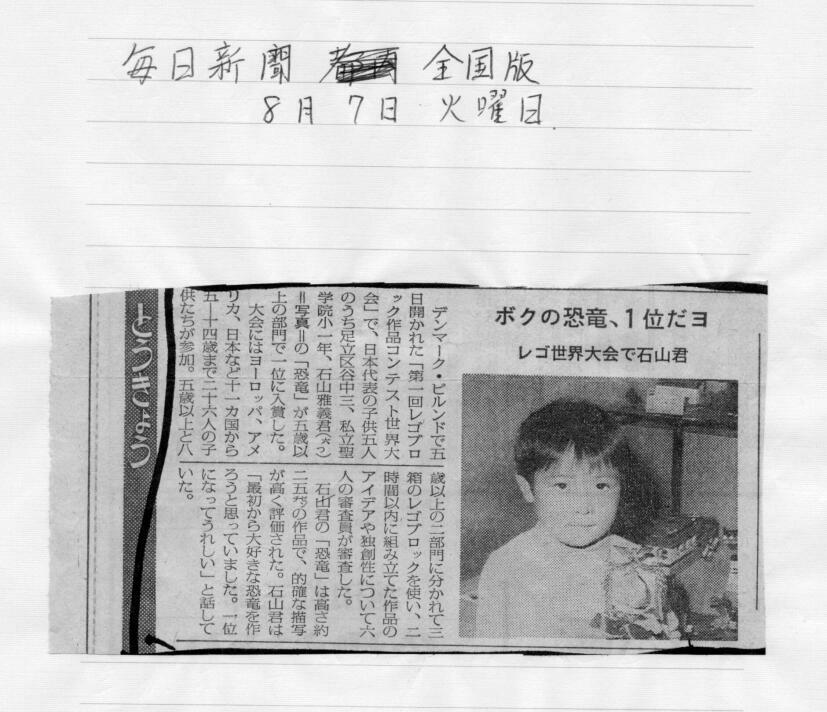 毎日新聞 全国版
8月7日 火曜日.
ボクの恐竜、1位だヨ
レゴ世界大会で石山君
デンマーク・ビルンドで五
日開かれた「第一回レゴブロ
ック作品コンテスト世界大
会」で、日本代表の子供五人
のうち足立区谷中三、私立聖
学院小一年、石山雅義君(六つ)
=写真=の「恐竜」が五歳以
上の部門で一位に入賞した。
大会にはヨーロッパ、アメ
リカ、日本など十一カ国から
五―十四歳まで二十六人の子
供たちが参加。五歳以上と八
歳以上の二部門に分かれて三
箱のレゴブロックを使い、二
時間以内に組み立てた作品の
アイデアや独創性について六
人の審査員が審査した。
石山君の「恐竜」は高さ約
二五㌢の作品で、的確な描写
が高く評価された。石山君は
「最初から大好きな恐竜を作
ろうと思っていました。一位
になってうれしい」と話して
いた。
とうきょう